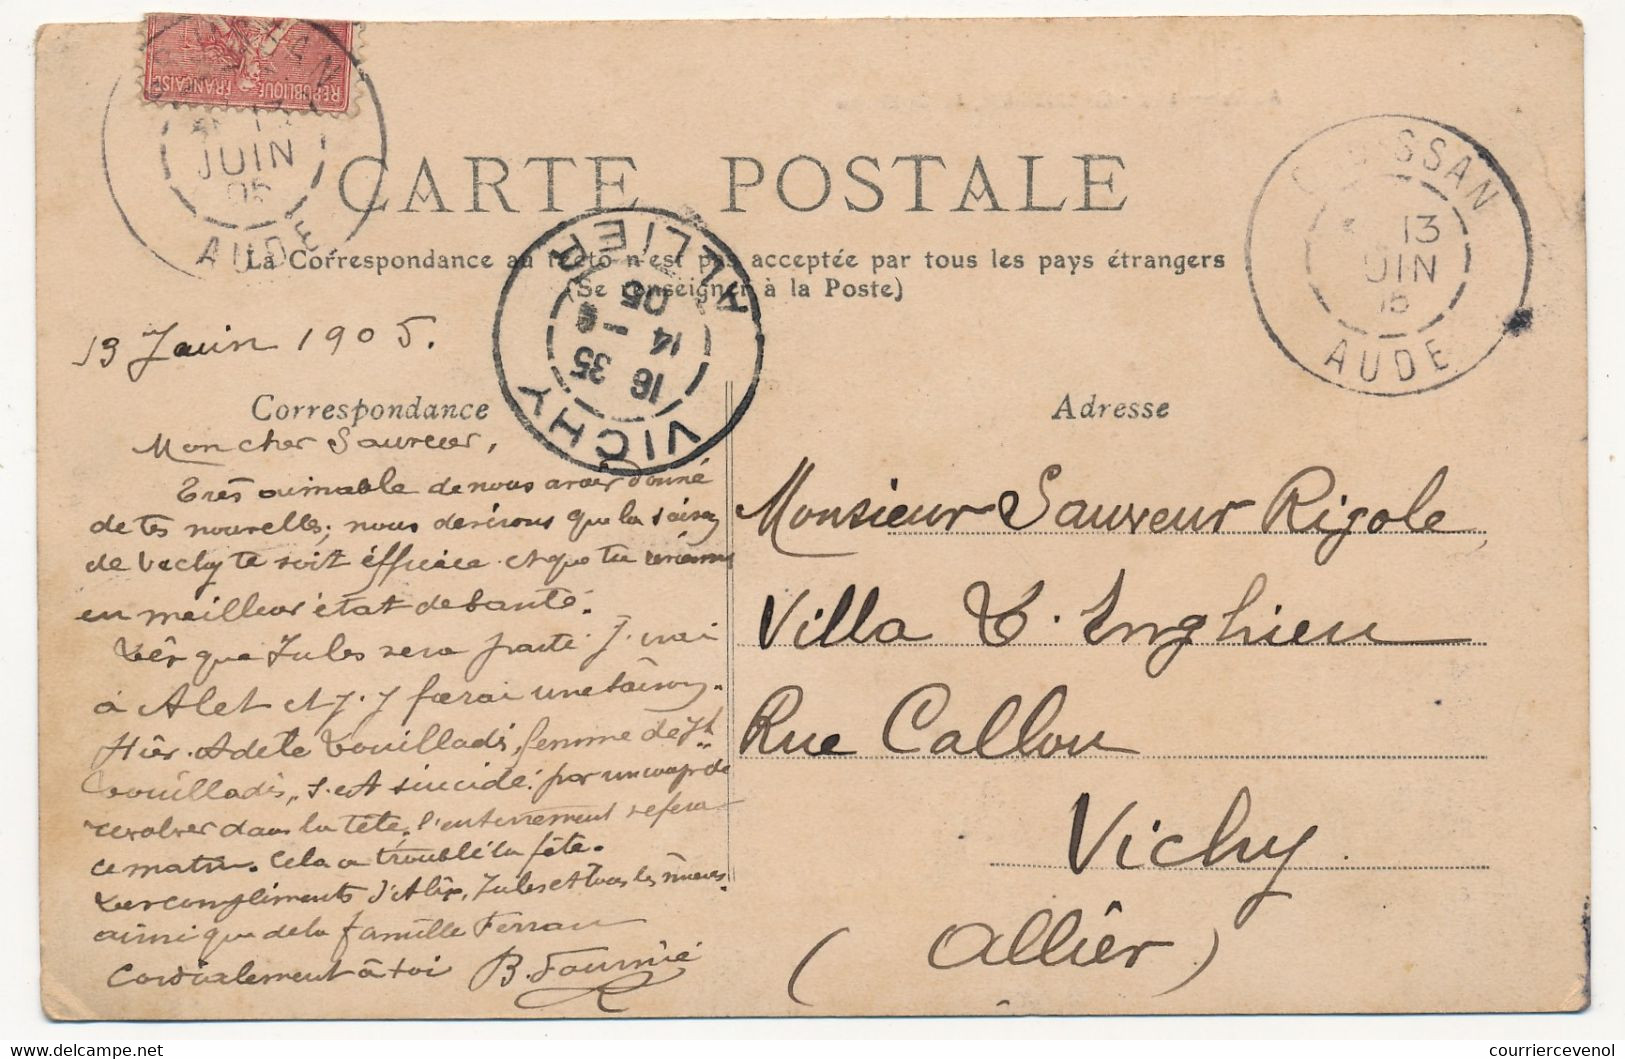 RÉPUBLIQUE FRANÇAISE
JUIN
05
AUDE
CARTE POSTALE
SSAN
13
JUIN
AUDE
La Correspondance au recto n'est pas acceptée par tous les pays étrangers
(Se renseigner à la Poste)
VICHY
ALLIER
16 35
14 - 6
05
13 Juin 1905.
Correspondance
Adresse
Mon cher Sauveur,
Très aimable de nous avoir donné
de tes nouvelles; nous désirons que la saison
de Vichy te soit éfficace et que tu reviennes
en meilleur état de santé.
que Jules sera parti j'irai
à Alet et j'y ferai une saison.
Hier Adèle Vouilladis, femme de Jh
Vouilladis, s'est suicidé par un coup de
revolver dans la tête, l'enterrement se fera
ce matin. Cela a troublé la fête.
compliments d' Jules et tous les nôtres
ainsi que de la famille Ferran
Cordialement à toi B. Fournié
Monsieur Sauveur Rigole
Villa T. Inghien
Rue Callou
Vichy
(Allier)
www.delcampe.net
courriercevenol